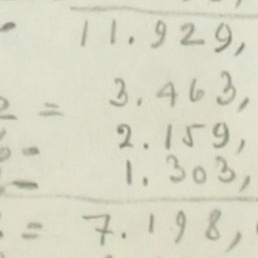 - 11.929,
= 3.463,
- 2.159,
- 1.303,
= 7.198,